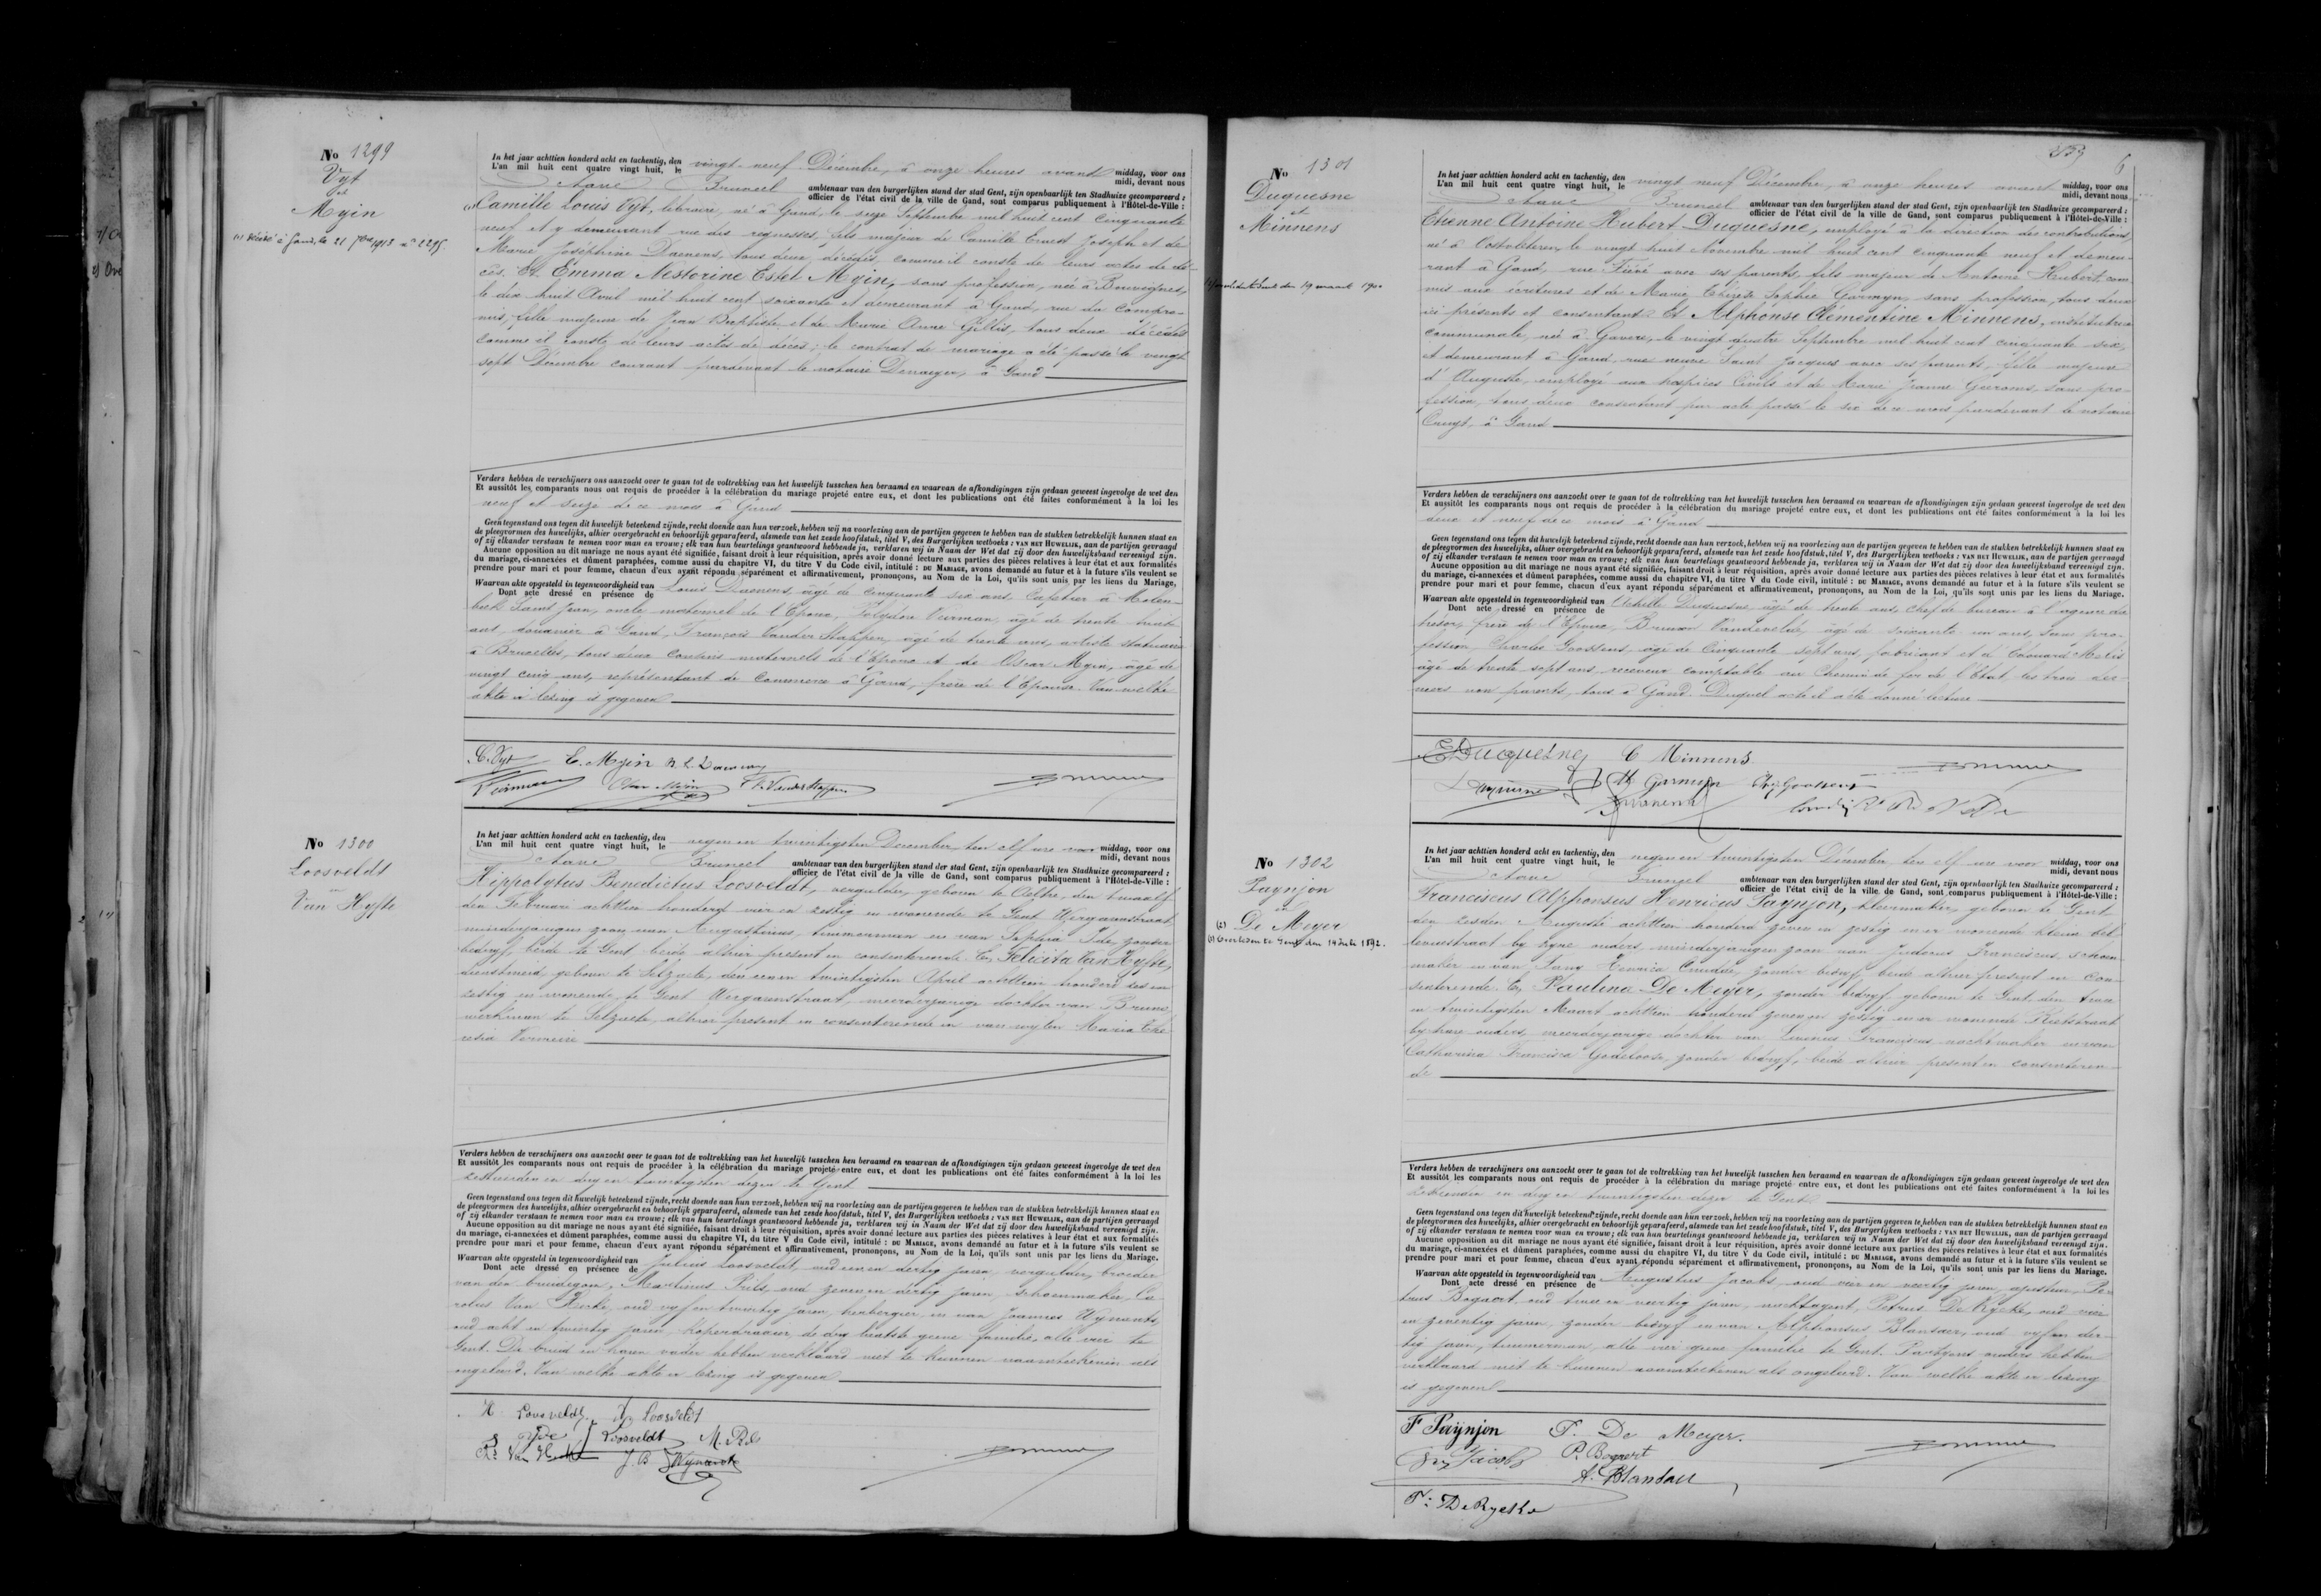 No 1299
Vyt
et
Myin
(1) Décédé à Gand, le 21 1913 n° 2295.
In het jaar achttien honderd acht en tachentig, den
L'an mil huit cent quatre vingt huit, le
vingt-neuf Décembre, à onze heures avant
middag, voor ons
midi, devant nous
Octave Bruneel
ambtenaar van den burgerlijken stand der stad Gent, zijn openbaarlijk ten Stadhuize gecompareerd :
officier de l'état civil de la ville de Gand, sont comparus publiquement à l'Hôtel-de-Ville :
(1) Camille Louis Vyt, libraire, né à Gand, le seize Septembre mil huit cent cinquante
neuf et y demeurant rue des régnesses, fils majeur de Camille Ernest Joseph et de
Marie Joséphine Daenens, tous deux décédés, comme il conste de leurs actes de dé-
cès. Et Emma Nestorine Estel Myin, sans profession, née à Bouvignes,
le dix huit Avril mil huit cent soixante et demeurant à Gand, rue du Compro-
mis, fille majeure de Jean Baptiste et de Marie Anne Gillis, tous deux décédés
comme il conste de leurs actes de décès; le contrat de mariage a été passé le vingt
sept Décembre courant pardevant le notaire à Gand
Verders hebben de verschijners ons aanzocht over te gaan tot de voltrekking van het huwelijk tusschen hen beraamd en waarvan de afkondigingen zijn gedaan geweest ingevolge de wet den
Et aussitôt les comparants nous ont requis de procéder à la célébration du mariage projeté entre eux, et dont les publications ont été faites conformément à la loi les
neuf et seize de ce mois à Gand
Geen tegenstand ons tegen dit huwelijk beteekend zijnde, recht doende aan hun verzoek, hebben wij na voorlezing aan de partijen gegeven te hebben van de stukken betrekkelijk hunnen staat en
de pleegvormen des huwelijks, alhier overgebracht en behoorlijk geparafeerd, alsmede van het zesde hoofdstuk, titel V, des Burgerlijken wetboeks : VAN HET HUWELIJK, aan de partijen gevraagd
of zij elkander verstaan te nemen voor man en vrouw; elk van hun beurtelings geantwoord hebbende ja, verklaren wij in Naam der Wet dat zij door den huwelijksband vereenigd zijn.
Aucune opposition au dit mariage ne nous ayant été signifiée, faisant droit à leur réquisition, après avoir donné lecture aux parties des pièces relatives à leur état et aux formalités
du mariage, ci-annexées et dûment paraphées, comme aussi du chapitre VI, du titre V du Code civil, intitulé : DU MARIAGE, avons demandé au futur et à la future s'ils veulent se
prendre pour mari et pour femme, chacun d'eux ayant répondu séparément et affirmativement, prononçons, au Nom de la Loi, qu'ils sont unis par les liens du Mariage.
Waarvan akte opgesteld in tegenwoordigheid van
Dont acte dressé en présence de
Louis Daenens, agé de cinquante six ans, Cafetier à Molen-
beek Saint Jean, oncle maternel de l'Epoux, Polydore Veirman, agé de trente huit
ans, douanier à Gand, François Vander Stappen, agé de trente ans, artiste statuaire
à Bruxelles, tous deux Cousins maternels de l'Epoux et de Oscar Myin, âgé de
vingt cinq ans, représentant de Commerce à Gand, frère de l'Epouse. Van welke
akte er lezing is gegeven
C. Vyt E. Myin
Oscar Myin
No 1300
Loosveldt
en
Van Hyfte
In het jaar achttien honderd acht en tachentig, den
L'an mil huit cent quatre vingt huit, le
negen en twintigsten December, ten elf ure voor
middag, voor ons
midi, devant nous
Octave Bruneel
ambtenaar van den burgerlijken stand der stad Gent, zijn openbaarlijk ten Stadhuize gecompareerd :
officier de l'état civil de la ville de Gand, sont comparus publiquement à l'Hôtel-de-Ville :
Hippolytus Benedictus Loosveldt, vergulder, geboren te Aeltre, den twaalf-
den Februari achttien honderd vier en zestig en wonende te Gent Wergaenstraat
minderjarigen zoon van Augustinus, timmerman en van Sophia Ide, zonder
bedrijf, beide te Gent beide alhier present en consenterende. En Felicita Van Hyfte,
dienstmeid, geboren te Selzaete, den een en twintigsten April achttien honderd zes en
zestig en wonende te Gent Wergaenstraat, meerderjarige dochter van Bruno,
werkman te Selzaete, alhier present en consenterende en van wylen Maria The-
resia Vermeire
Verders hebben de verschijners ons aanzocht over te gaan tot de voltrekking van het huwelijk tusschen hen beraamd en waarvan de afkondigingen zijn gedaan geweest ingevolge de wet den
Et aussitôt les comparants nous ont requis de procéder à la célébration du mariage projeté entre eux, et dont les publications ont été faites conformément à la loi les
zestienden en dry en twintigsten dezer te Gent
Geen tegenstand ons tegen dit huwelijk beteekend zijnde, recht doende aan hun verzoek, hebben wij na voorlezing aan de partijen gegeven te hebben van de stukken betrekkelijk hunnen staat en
de pleegvormen des huwelijks, alhier overgebracht en behoorlijk geparafeerd, alsmede van het zesde hoofdstuk, titel V, des Burgerlijken wetboeks : VAN HET HUWELIJK, aan de partijen gevraagd
of zij elkander verstaan te nemen voor man en vrouw; elk van hun beurtelings geantwoord hebbende ja, verklaren wij in Naam der Wet dat zij door den huwelijksband vereenigd zijn.
Aucune opposition au dit mariage ne nous ayant été signifiée, faisant droit à leur réquisition, après avoir donné lecture aux parties des pièces relatives à leur état et aux formalités
du mariage, ci-annexées et dûment paraphées, comme aussi du chapitre VI, du titre V du Code civil, intitulé : DU MARIAGE, avons demandé au futur et à la future s'ils veulent se
prendre pour mari et pour femme, chacun d'eux ayant répondu séparément et affirmativement, prononçons, au Nom de la Loi, qu'ils sont unis par les liens du Mariage.
Waarvan akte opgesteld in tegenwoordigheid van
Dont acte dressé en présence de
Julius Loosveldt, oud een en dertig jaren, vergulder, broeder
van den bruidegom, Martinus Pröls, oud zeven en dertig jaren, schoenmaker, Ca-
rolus Van Kerke, oud vyf en twintig jaren, herbergier, en van Joannes Wynants,
oud acht en twintig jaren, koperdraaier, de dry laatste geene familie, alle vier te
Gent. De bruid en haren vader hebben verklaard niet te kunnen naamteekenen als
ongeleerd. Van welke akte er lezing is gegeven
H. Loosveldt Loosveldt
S Yde J Loosveldt
J. B Wynants
No 1301
Duquesne
et
Minnens
19 maart 1900
In het jaar achttien honderd acht en tachentig, den
L'an mil huit cent quatre vingt huit, le
vingt neuf Décembre, à onze heures avant
middag, voor ons
midi, devant nous
Octave Bruneel
ambtenaar van den burgerlijken stand der stad Gent, zijn openbaarlijk ten Stadhuize gecompareerd :
officier de l'état civil de la ville de Gand, sont comparus publiquement à l'Hôtel-de-Ville :
Etienne Antoine Hubert Duquesne, employé à la direction des contributions,
né à Oostvleteren, le vingt huit Novembre mil huit cent cinquante neuf et demeu-
rant à Gand, rue Fiévé avec ses parents, fils majeur de Antoine Heubert, com-
mis aux écritures et de Marie Thérèse Sophie Garmyn, sans profession, tous deux
ici présents et consentants. Et Alphonse Clémentine Minnens, institutrice
communale, née à Gavere, le vingt quatre Septembre mil huit cent cinquante six,
et demeurant à Gand, rue neuve Saint Jacques avec ses parents, fille majeure
d'Auguste, employé aux hospices Civils et de Marie Jeanne sans pro-
fession, tous deux consentant par acte passé le six de ce mois pardevant le notaire
à Gand
Verders hebben de verschijners ons aanzocht over te gaan tot de voltrekking van het huwelijk tusschen hen beraamd en waarvan de afkondigingen zijn gedaan geweest ingevolge de wet den
Et aussitôt les comparants nous ont requis de procéder à la célébration du mariage projeté entre eux, et dont les publications ont été faites conformément à la loi les
deux et neuf de ce mois à Gand
Geen tegenstand ons tegen dit huwelijk beteekend zijnde, recht doende aan hun verzoek, hebben wij na voorlezing aan de partijen gegeven te hebben van de stukken betrekkelijk hunnen staat en
de pleegvormen des huwelijks, alhier overgebracht en behoorlijk geparafeerd, alsmede van het zesde hoofdstuk, titel V, des Burgerlijken wetboeks : VAN HET HUWELIJK, aan de partijen gevraagd
of zij elkander verstaan te nemen voor man en vrouw; elk van hun beurtelings geantwoord hebbende ja, verklaren wij in Naam der Wet dat zij door den huwelijksband vereenigd zijn.
Aucune opposition au dit mariage ne nous ayant été signifiée, faisant droit à leur réquisition, après avoir donné lecture aux parties des pièces relatives à leur état et aux formalités
du mariage, ci-annexées et dûment paraphées, comme aussi du chapitre VI, du titre V du Code civil, intitulé : DU MARIAGE, avons demandé au futur et à la future s'ils veulent se
prendre pour mari et pour femme, chacun d'eux ayant répondu séparément et affirmativement, prononçons, au Nom de la Loi, qu'ils sont unis par les liens du Mariage.
Waarvan akte opgesteld in tegenwoordigheid van
Dont acte dressé en présence de
Achille Duquesne, agé de trente ans, chef de bureau à l'agence du
trésor, frère de l'Epoux, Bruno Vandevelde, agé de soixante un ans, sans pro-
fession, Charles Goossens, agé de Cinquante sept ans, fabricant et d'Edouard Melis
âgé de trente sept ans, receveur comptable au Chemin de fer de l'état les trois der-
niers non parents, tous à Gand. Duquel acte il a été donné lecture
E Duquesne C Minnens
M Garmyn Ch Goossens
No 1302
Paynjon
en
(2) De Meyer
(2) Overleden te Gent den 14 Juli 1892.
In het jaar achttien honderd acht en tachentig, den
L'an mil huit cent quatre vingt huit, le
negen en twintigsten December ten elf ure voor
middag, voor ons
midi, devant nous
Octave Bruneel
ambtenaar van den burgerlijken stand der stad Gent, zijn openbaarlijk ten Stadhuize gecompareerd :
officier de l'état civil de la ville de Gand, sont comparus publiquement à l'Hôtel-de-Ville :
Franciscus Alphonsus Henricus Paynjon, kleermaker, geboren te Gent
den zesden Augusti achttien honderd zeven en zestig en er wonende kleine bel-
levuestraat by zyne ouders, minderjarigen zoon van Judocus Franciscus, schoen-
maker en van Henrica zonder bedryf, beide alhier present en con-
senterende. En Paulina De Meyer, zonder bedryf, geboren te Gent, den twee
en twintigsten Maart achttien honderd zeven en zestig en er wonende Rietstraat
by hare ouders, meerderjarige dochter van Livinus Franciscus nachtwaker en van
Catharina Francisca zonder bedryf, beide alhier present en consenteren-
de
Verders hebben de verschijners ons aanzocht over te gaan tot de voltrekking van het huwelijk tusschen hen beraamd en waarvan de afkondigingen zijn gedaan geweest ingevolge de wet den
Et aussitôt les comparants nous ont requis de procéder à la célébration du mariage projeté entre eux, et dont les publications ont été faites conformément à la loi les
zestienden en dry en twintigsten dezer te Gent
Geen tegenstand ons tegen dit huwelijk beteekend zijnde, recht doende aan hun verzoek, hebben wij na voorlezing aan de partijen gegeven te hebben van de stukken betrekkelijk hunnen staat en
de pleegvormen des huwelijks, alhier overgebracht en behoorlijk geparafeerd, alsmede van het zesde hoofdstuk, titel V, des Burgerlijken wetboeks : VAN HET HUWELIJK, aan de partijen gevraagd
of zij elkander verstaan te nemen voor man en vrouw; elk van hun beurtelings geantwoord hebbende ja, verklaren wij in Naam der Wet dat zij door den huwelijksband vereenigd zijn.
Aucune opposition au dit mariage ne nous ayant été signifiée, faisant droit à leur réquisition, après avoir donné lecture aux parties des pièces relatives à leur état et aux formalités
du mariage, ci-annexées et dûment paraphées, comme aussi du chapitre VI, du titre V du Code civil, intitulé : DU MARIAGE, avons demandé au futur et à la future s'ils veulent se
prendre pour mari et pour femme, chacun d'eux ayant répondu séparément et affirmativement, prononçons, au Nom de la Loi, qu'ils sont unis par les liens du Mariage.
Waarvan akte opgesteld in tegenwoordigheid van
Dont acte dressé en présence de
Augustus Jacobs, oud vier en veertig jaren, Pe-
trus Bogaert, oud twee en veertig jaren, nachtagent, Petrus De Rycke, oud vier
en zeventig jaren, zonder bedryf en van Alphonsus Blansaer, oud vyf en der-
tig jaren, timmerman, alle vier geene familie te Gent. Partyens ouders hebben
verklaard niet te kunnen naamteekenen als ongeleerd. Van welke akte er lezing
is gegeven
F Paynjon P. De Meyer.
Jacobs P. Bogaert
A. Blansaer
P. De Rycke